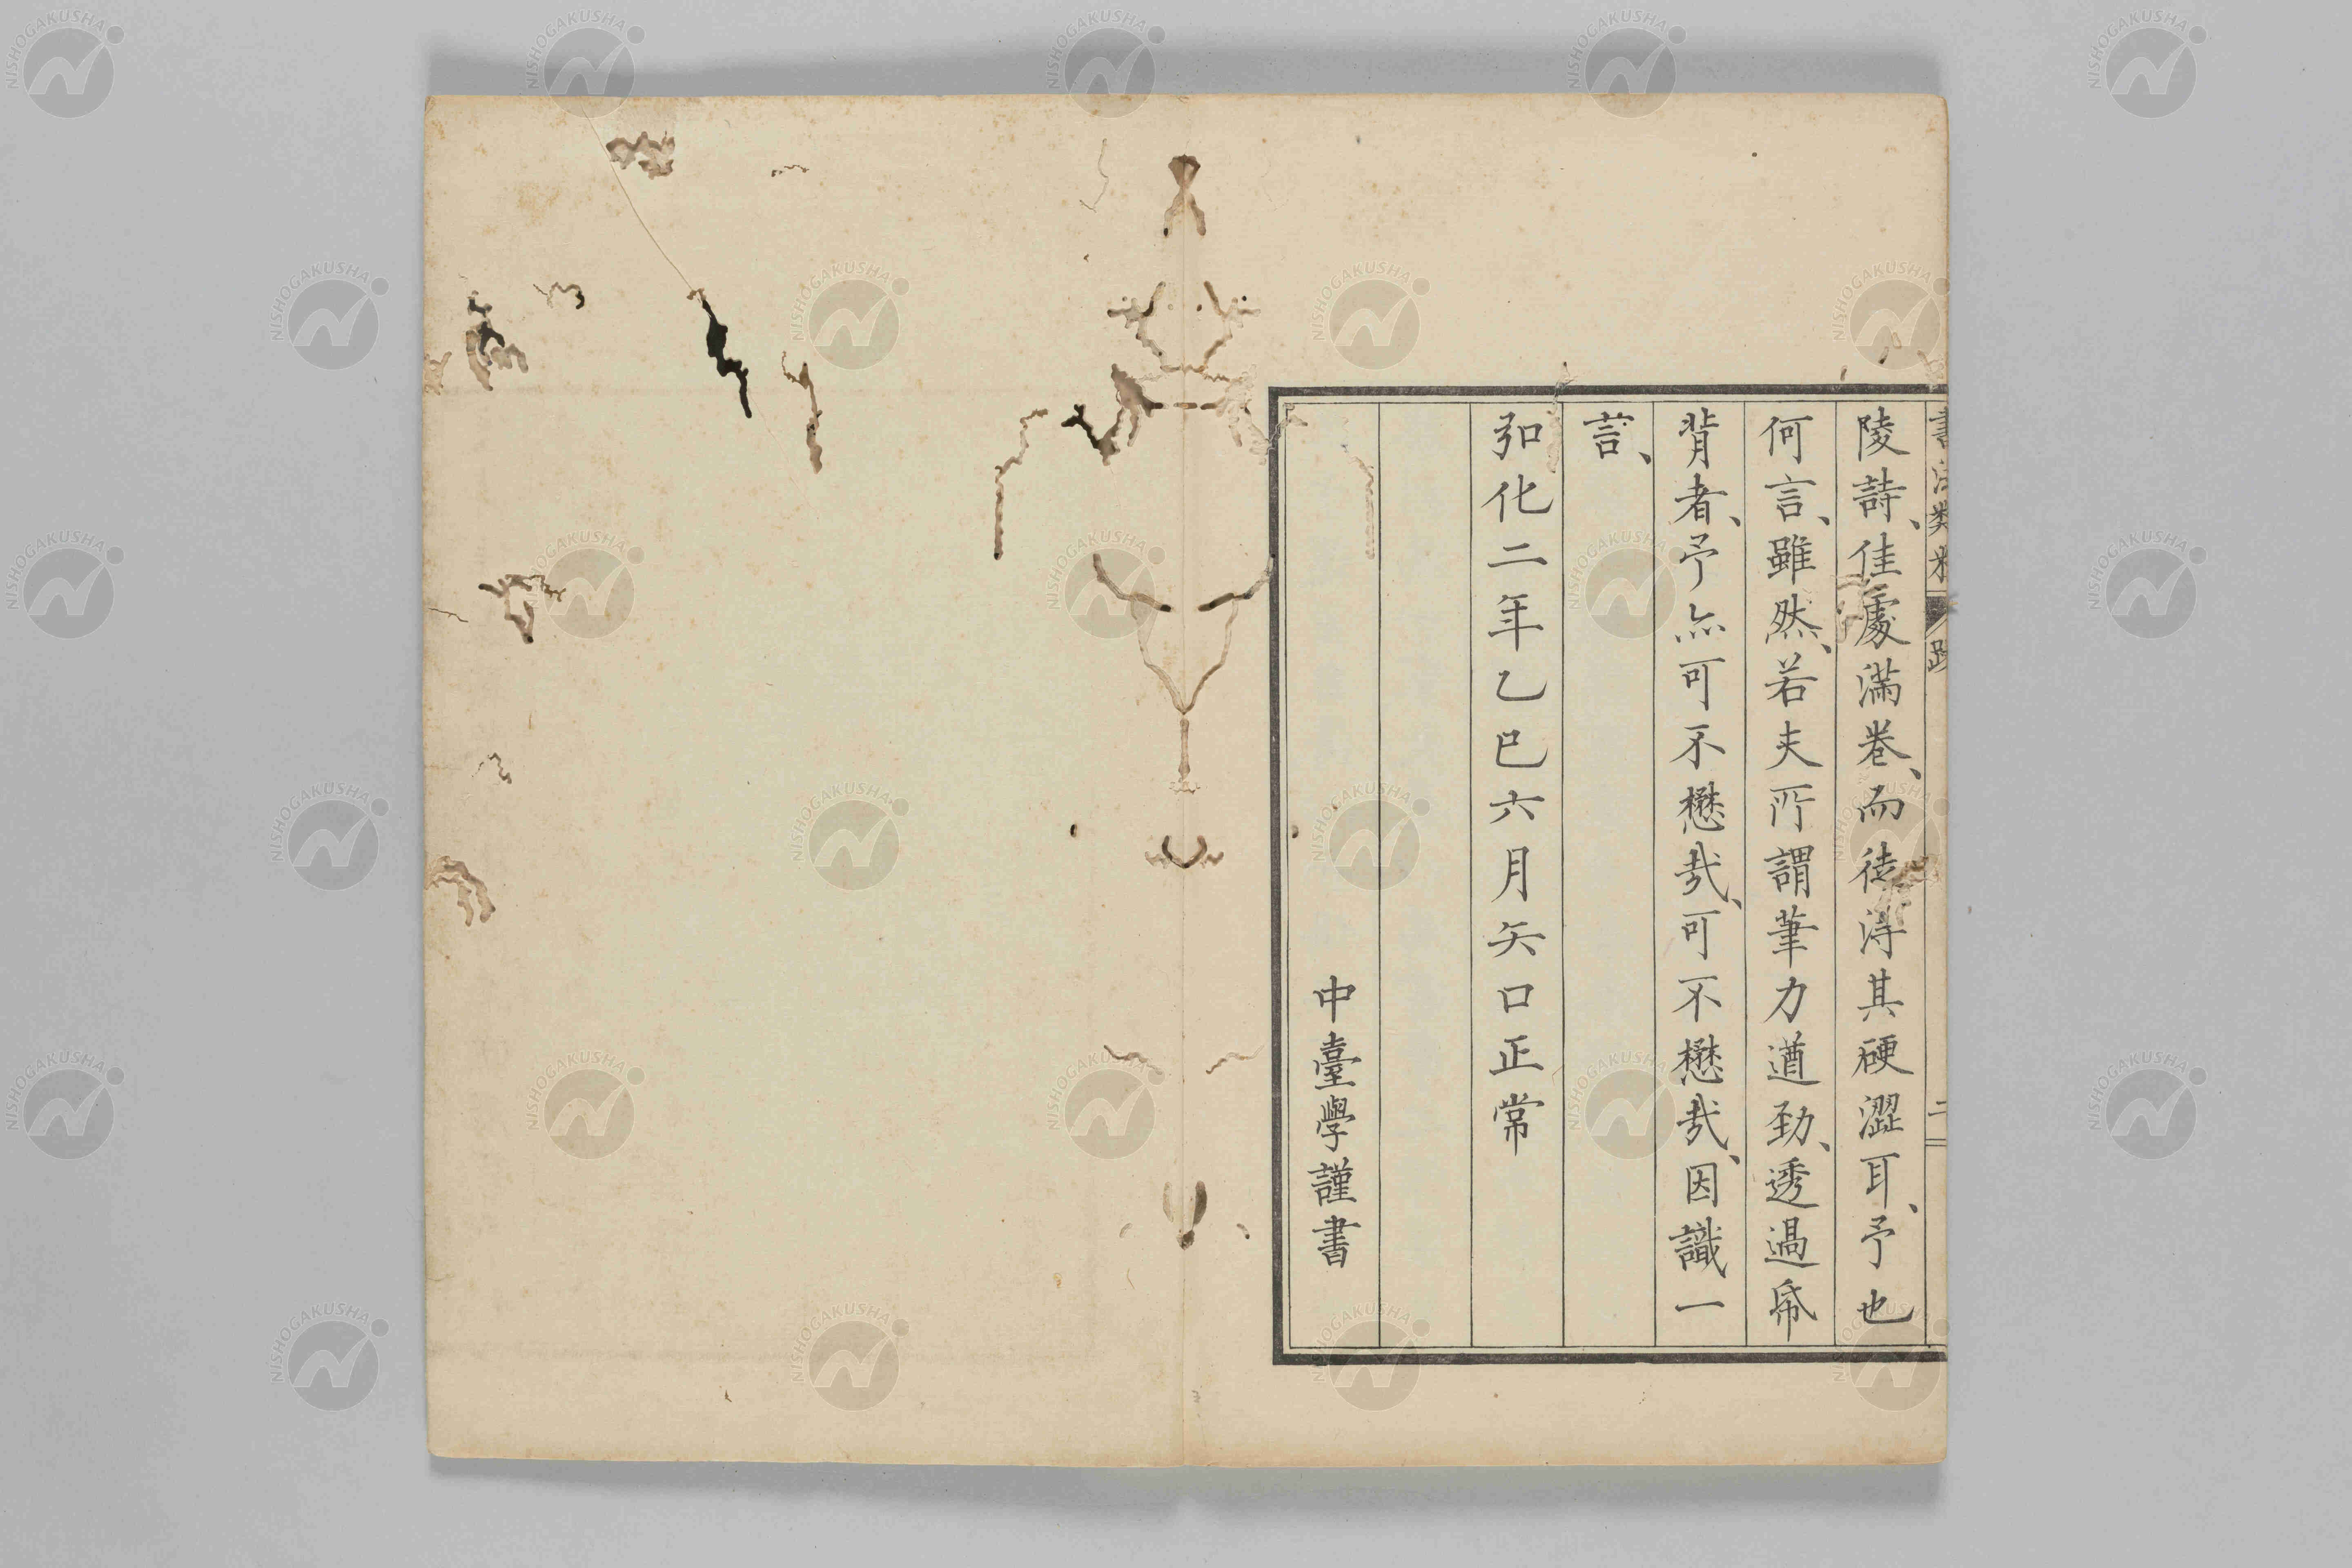 書法類
跋
二
陵詩、佳處滿卷、而徒得其硬澀耳、予也
何言、雖然、若夫所謂筆力遒勁、透過帋
背者、予亦可不懋哉、可不懋哉、因識一
言、
弘化二年乙巳六月矢口正常
中臺學謹書
NISHOGAKUSHA